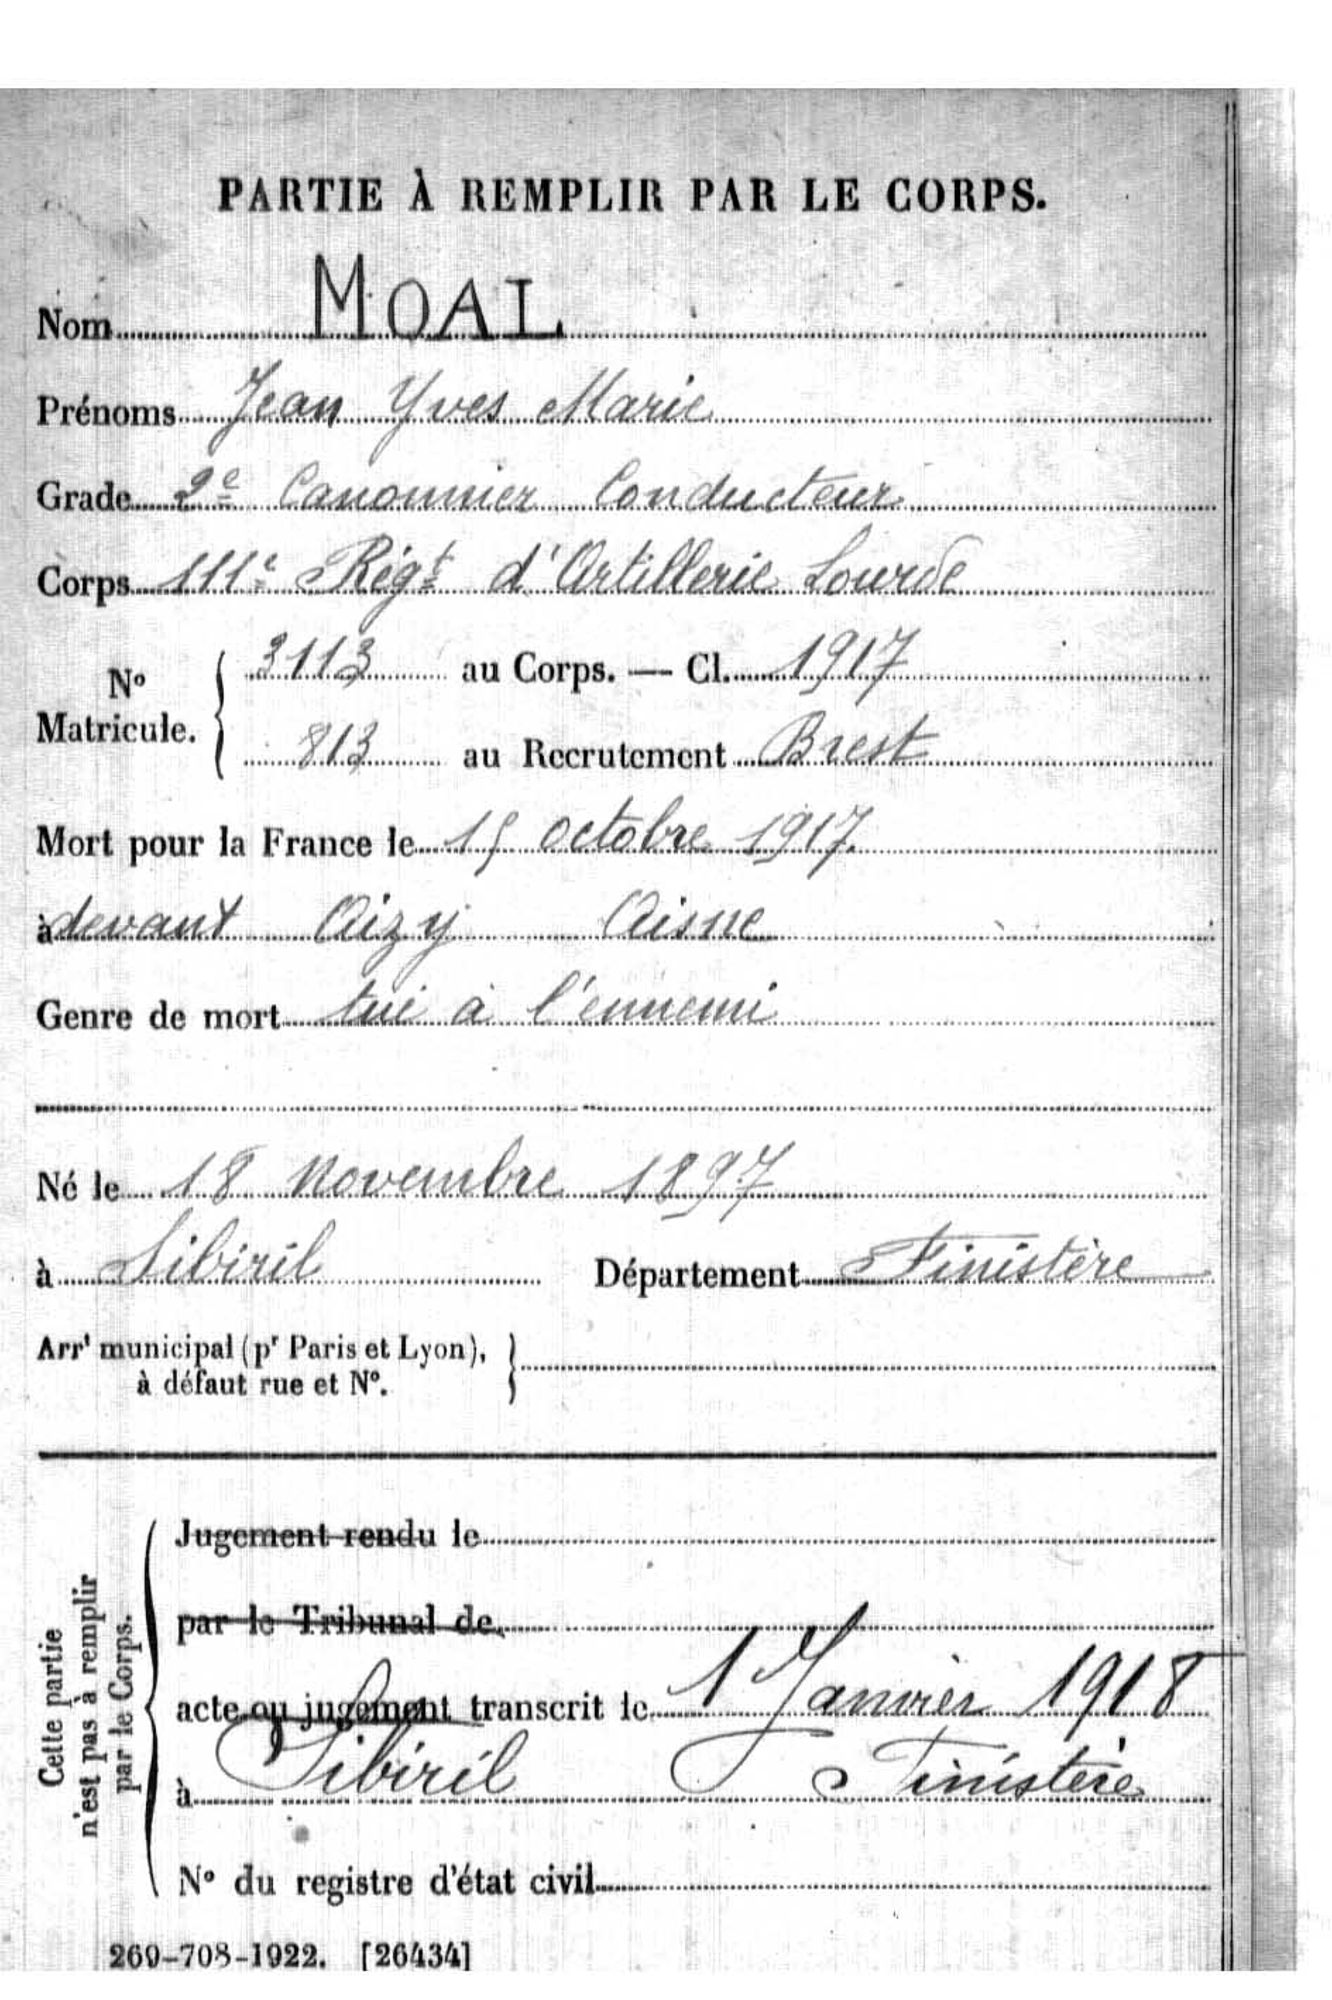 PARTIE À REMPLIR PAR LE CORPS.
Nom MOAL
Prénoms Jean Yves Marie
Grade 2e Canonnier Conducteur
Corps 111e Régt d'Artillerie Lourde
No Matricule. { 3113 au Corps. — Cl. 1917
813 au Recrutement Brest
Mort pour la France le 15 octobre 1917.
à devant Aizy Aisne
Genre de mort tué à l'ennemi
Né le 18 Novembre 1897
à Sibiril Département Finistère
Arrt municipal (pr Paris et Lyon),
à défaut rue et No.
Cette partie
n'est pas à remplir
par le Corps.
Jugement rendu le
par le Tribunal de
acte ou jugement transcrit le 1 Janvier 1918
à Sibiril Finistère
No du registre d'état civil
269-708-1922. [26434]